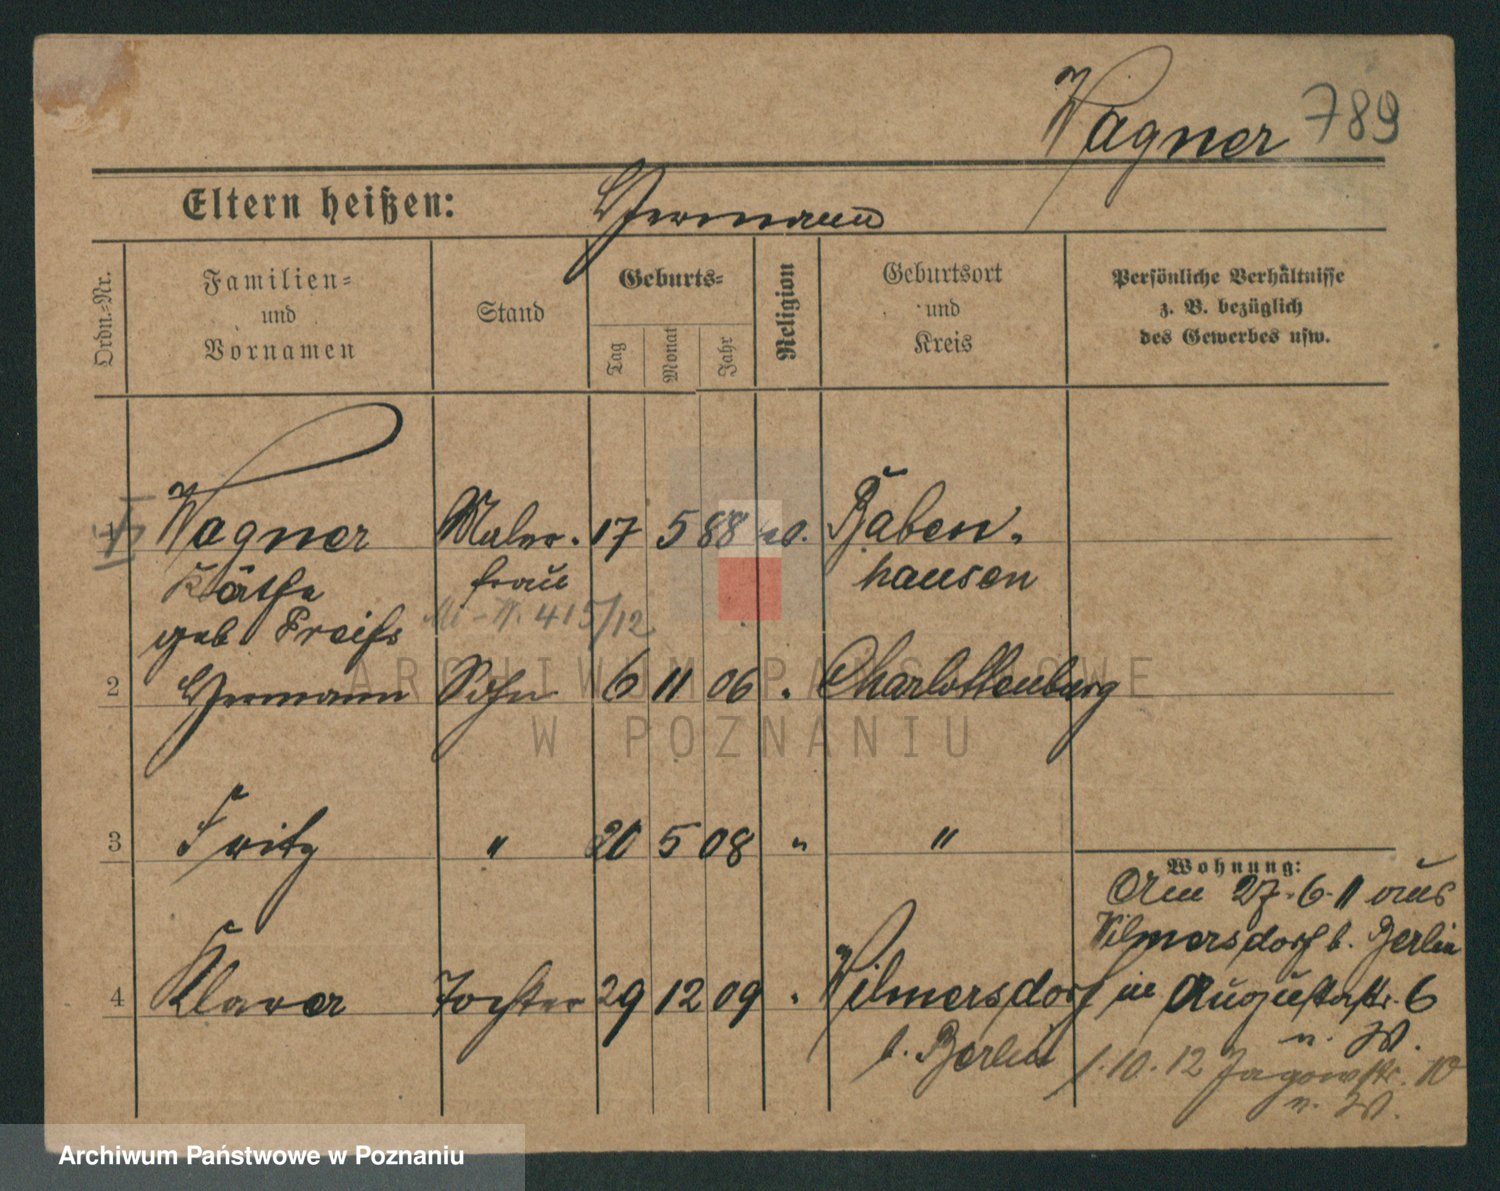 Wagner 789
Eltern heißen: Hermann
Ordn.-Nr.
Familien-
und
Vornamen
Stand
Geburts-
Tag
Monat
Jahr
Religion
Geburtsort
und
Kreis
Persönliche Verhältnisse
z. B. bezüglich
des Gewerbes usw.
1 Wagner Maler- 17 5 88 Baben-
Käthe frau hausen
geb Preiß 415/12
2 Hermann Sohn 6 11 06 " Charlottenburg
3 Fritz " 20 5 08 " "
Wohnung:
Am 27.6.11 aus
Wilmersdorf b. Berlin
4 Klara Tochter 29 12 09 " Wilmersdorf in Augustastr. 6
b. Berlin n. W.
1.10.12 Jagowstr. 10
n. W.
ARCHIWUM PAŃSTWOWE
W POZNANIU
Archiwum Państwowe w Poznaniu